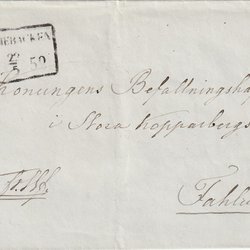 22
5 50
Konungens Befallningsha
i Stora Kopparbergs
Fahlu